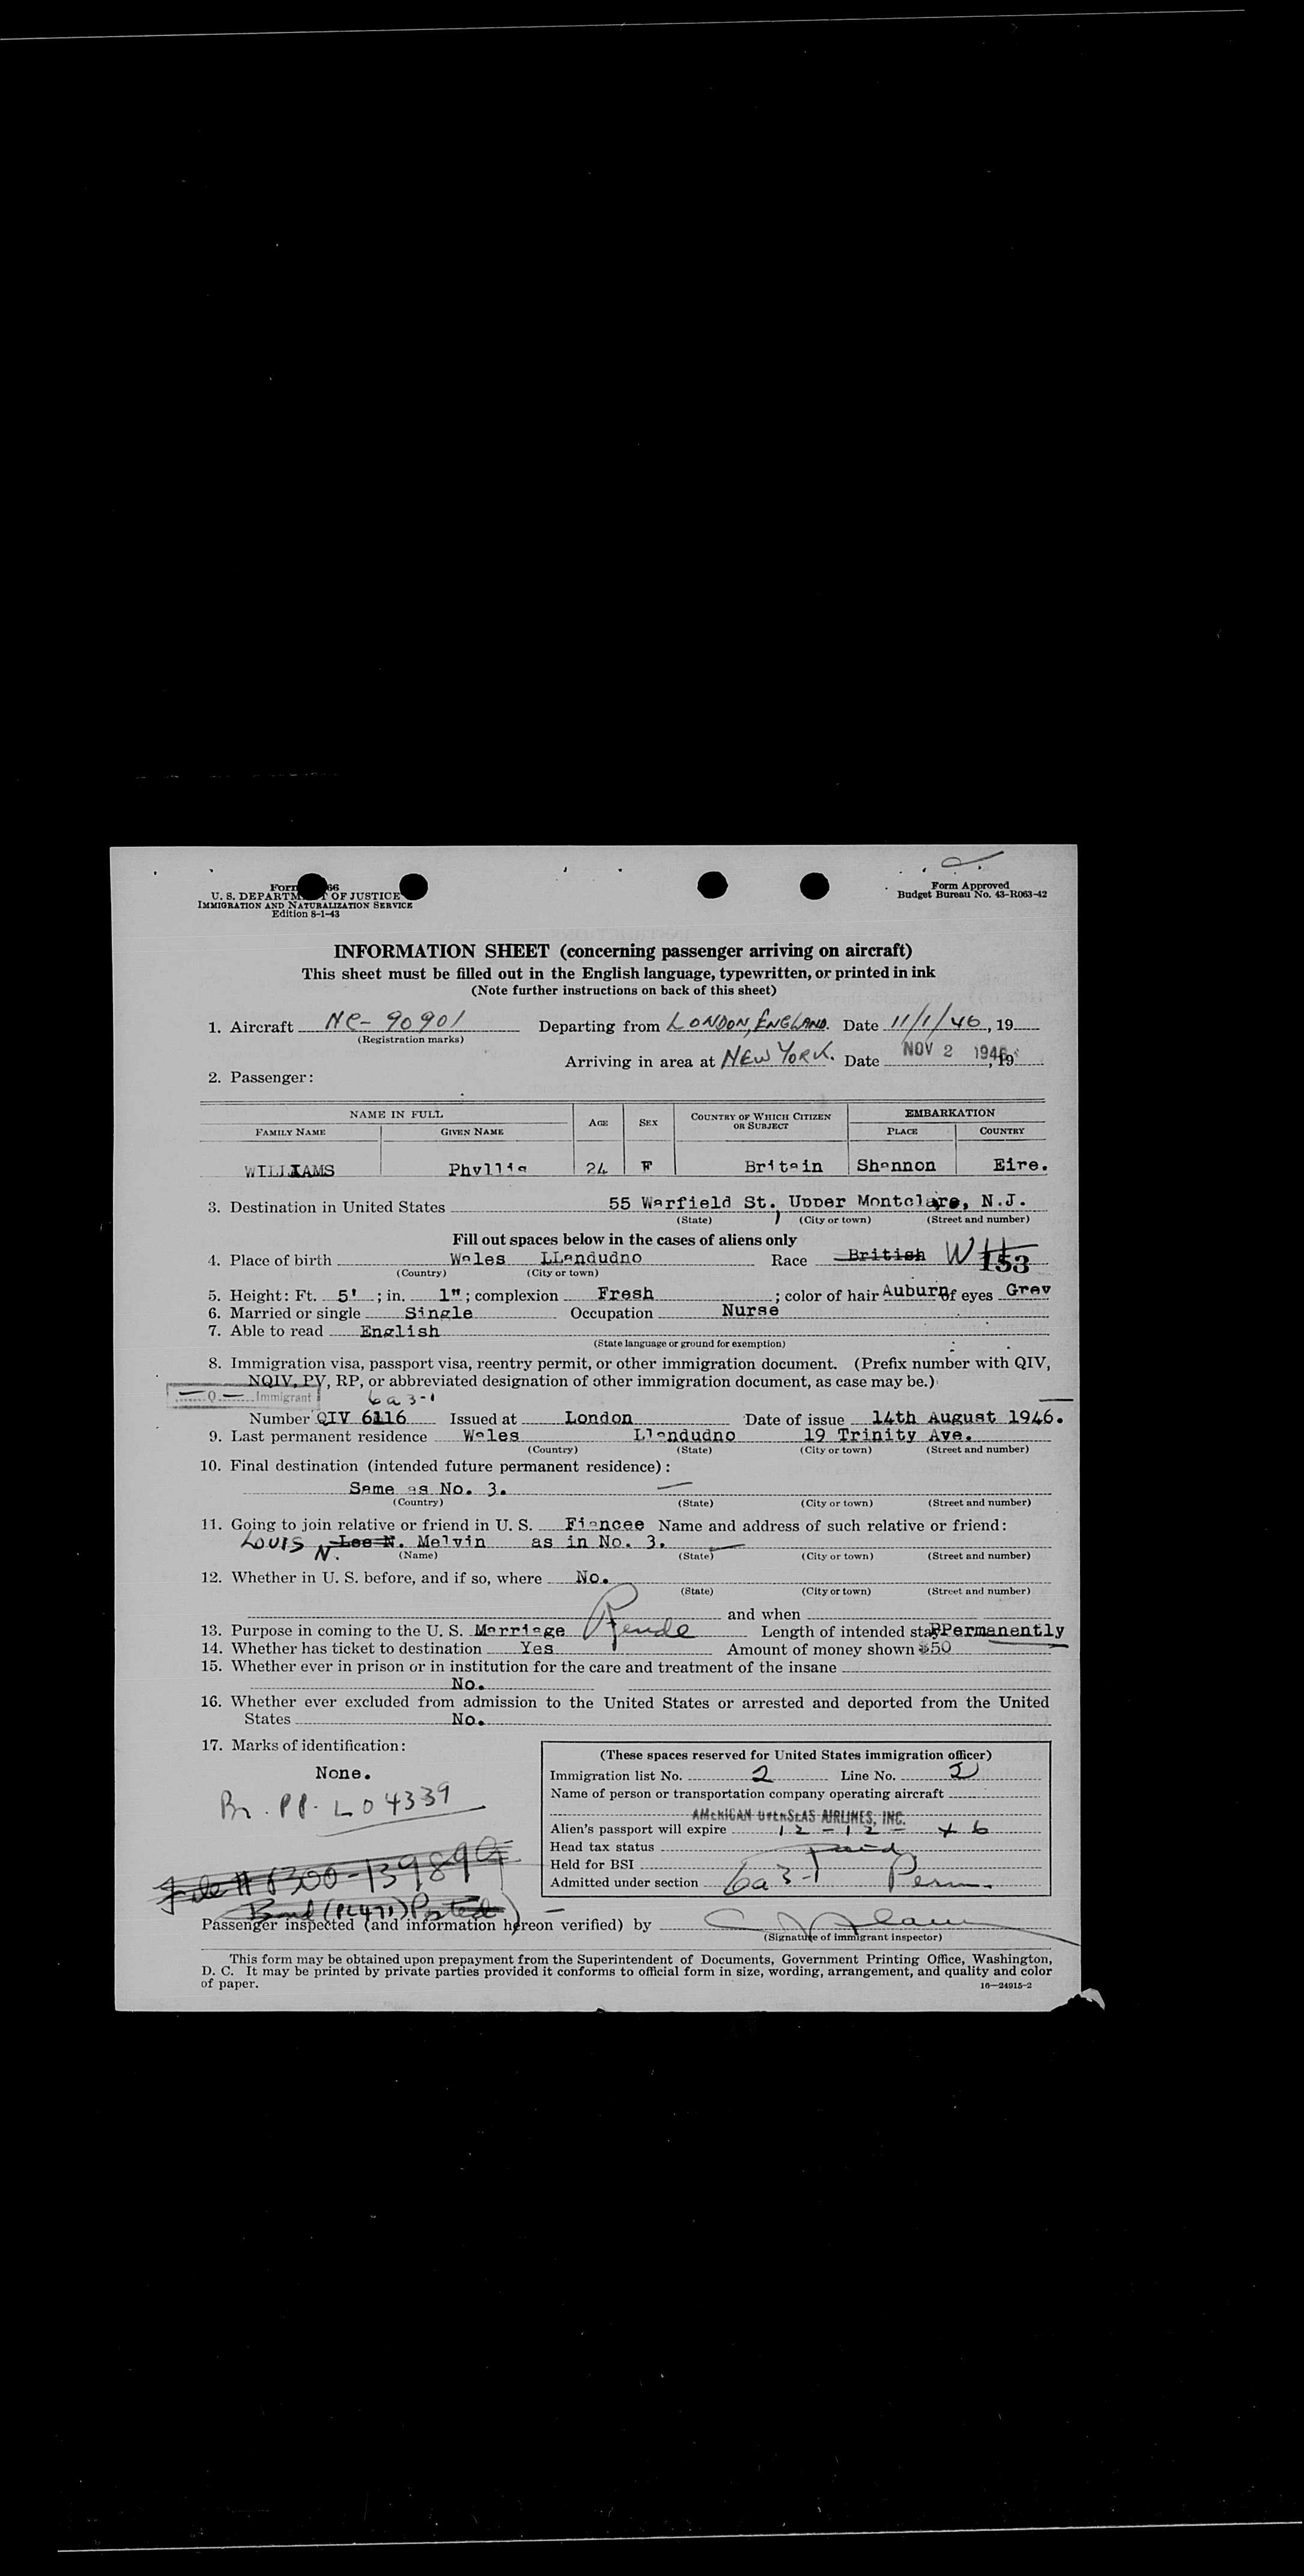 Form 66
U. S. DEPARTM OF JUSTICE
IMMIGRATION AND NATURALIZATION SERVICE
Edition 8-1-43
Form Approved
Budget Bureau No. 43-R063-42
INFORMATION SHEET (concerning passenger arriving on aircraft)
This sheet must be filled out in the English language, typewritten, or printed in ink
(Note further instructions on back of this sheet)
1. Aircraft NC-90901 Departing from LONDON, ENGLAND. Date 11/1/46, 19
(Registration marks)
Arriving in area at NEW YORK. Date NOV 2 1946, 19
2. Passenger:
NAME IN FULL AGE SEX COUNTRY OF WHICH CITIZEN OR SUBJECT EMBARKATION
FAMILY NAME GIVEN NAME PLACE COUNTRY
WILLIAMS Phyllis 24 F Britain Shannon Eire.
3. Destination in United States 55 Warfield St., Upper Montclare, N.J.
(State) (City or town) (Street and number)
Fill out spaces below in the cases of aliens only
4. Place of birth Wales LLandudno Race British W 153
(Country) (City or town)
5. Height: Ft. 5' ; in. 1" ; complexion Fresh ; color of hair Auburn of eyes Grey
6. Married or single Single Occupation Nurse
7. Able to read English
(State language or ground for exemption)
8. Immigration visa, passport visa, reentry permit, or other immigration document. (Prefix number with QIV,
NQIV, PV, RP, or abbreviated designation of other immigration document, as case may be.)
Q Immigrant 6a3-1
Number QIV 6116 Issued at London Date of issue 14th August 1946.
9. Last permanent residence Wales Llandudno 19 Trinity Ave.
(Country) (State) (City or town) (Street and number)
10. Final destination (intended future permanent residence):
Same as No. 3.
(Country) (State) (City or town) (Street and number)
11. Going to join relative or friend in U. S. Fiancee Name and address of such relative or friend:
LOUIS N. Lee N. Melvin as in No. 3.
(Name) (State) (City or town) (Street and number)
12. Whether in U. S. before, and if so, where No.
(State) (City or town) (Street and number)
and when
13. Purpose in coming to the U. S. Marriage Reside Length of intended stay PPermanently
14. Whether has ticket to destination Yes Amount of money shown $50
15. Whether ever in prison or in institution for the care and treatment of the insane
No.
16. Whether ever excluded from admission to the United States or arrested and deported from the United
States No.
17. Marks of identification:
None.
Br. PP. L04339
File # 6300-13989G
Bond (PL471) Posted
(These spaces reserved for United States immigration officer)
Immigration list No. 2 Line No. 2
Name of person or transportation company operating aircraft
AMERICAN OVERSEAS AIRLINES, INC.
Alien's passport will expire 12-12-46
Head tax status paid
Held for BSI
Admitted under section 6a3-1 Perm.
Passenger inspected (and information hereon verified) by
(Signature of immigrant inspector)
This form may be obtained upon prepayment from the Superintendent of Documents, Government Printing Office, Washington,
D. C. It may be printed by private parties provided it conforms to official form in size, wording, arrangement, and quality and color
of paper.
16—24915-2